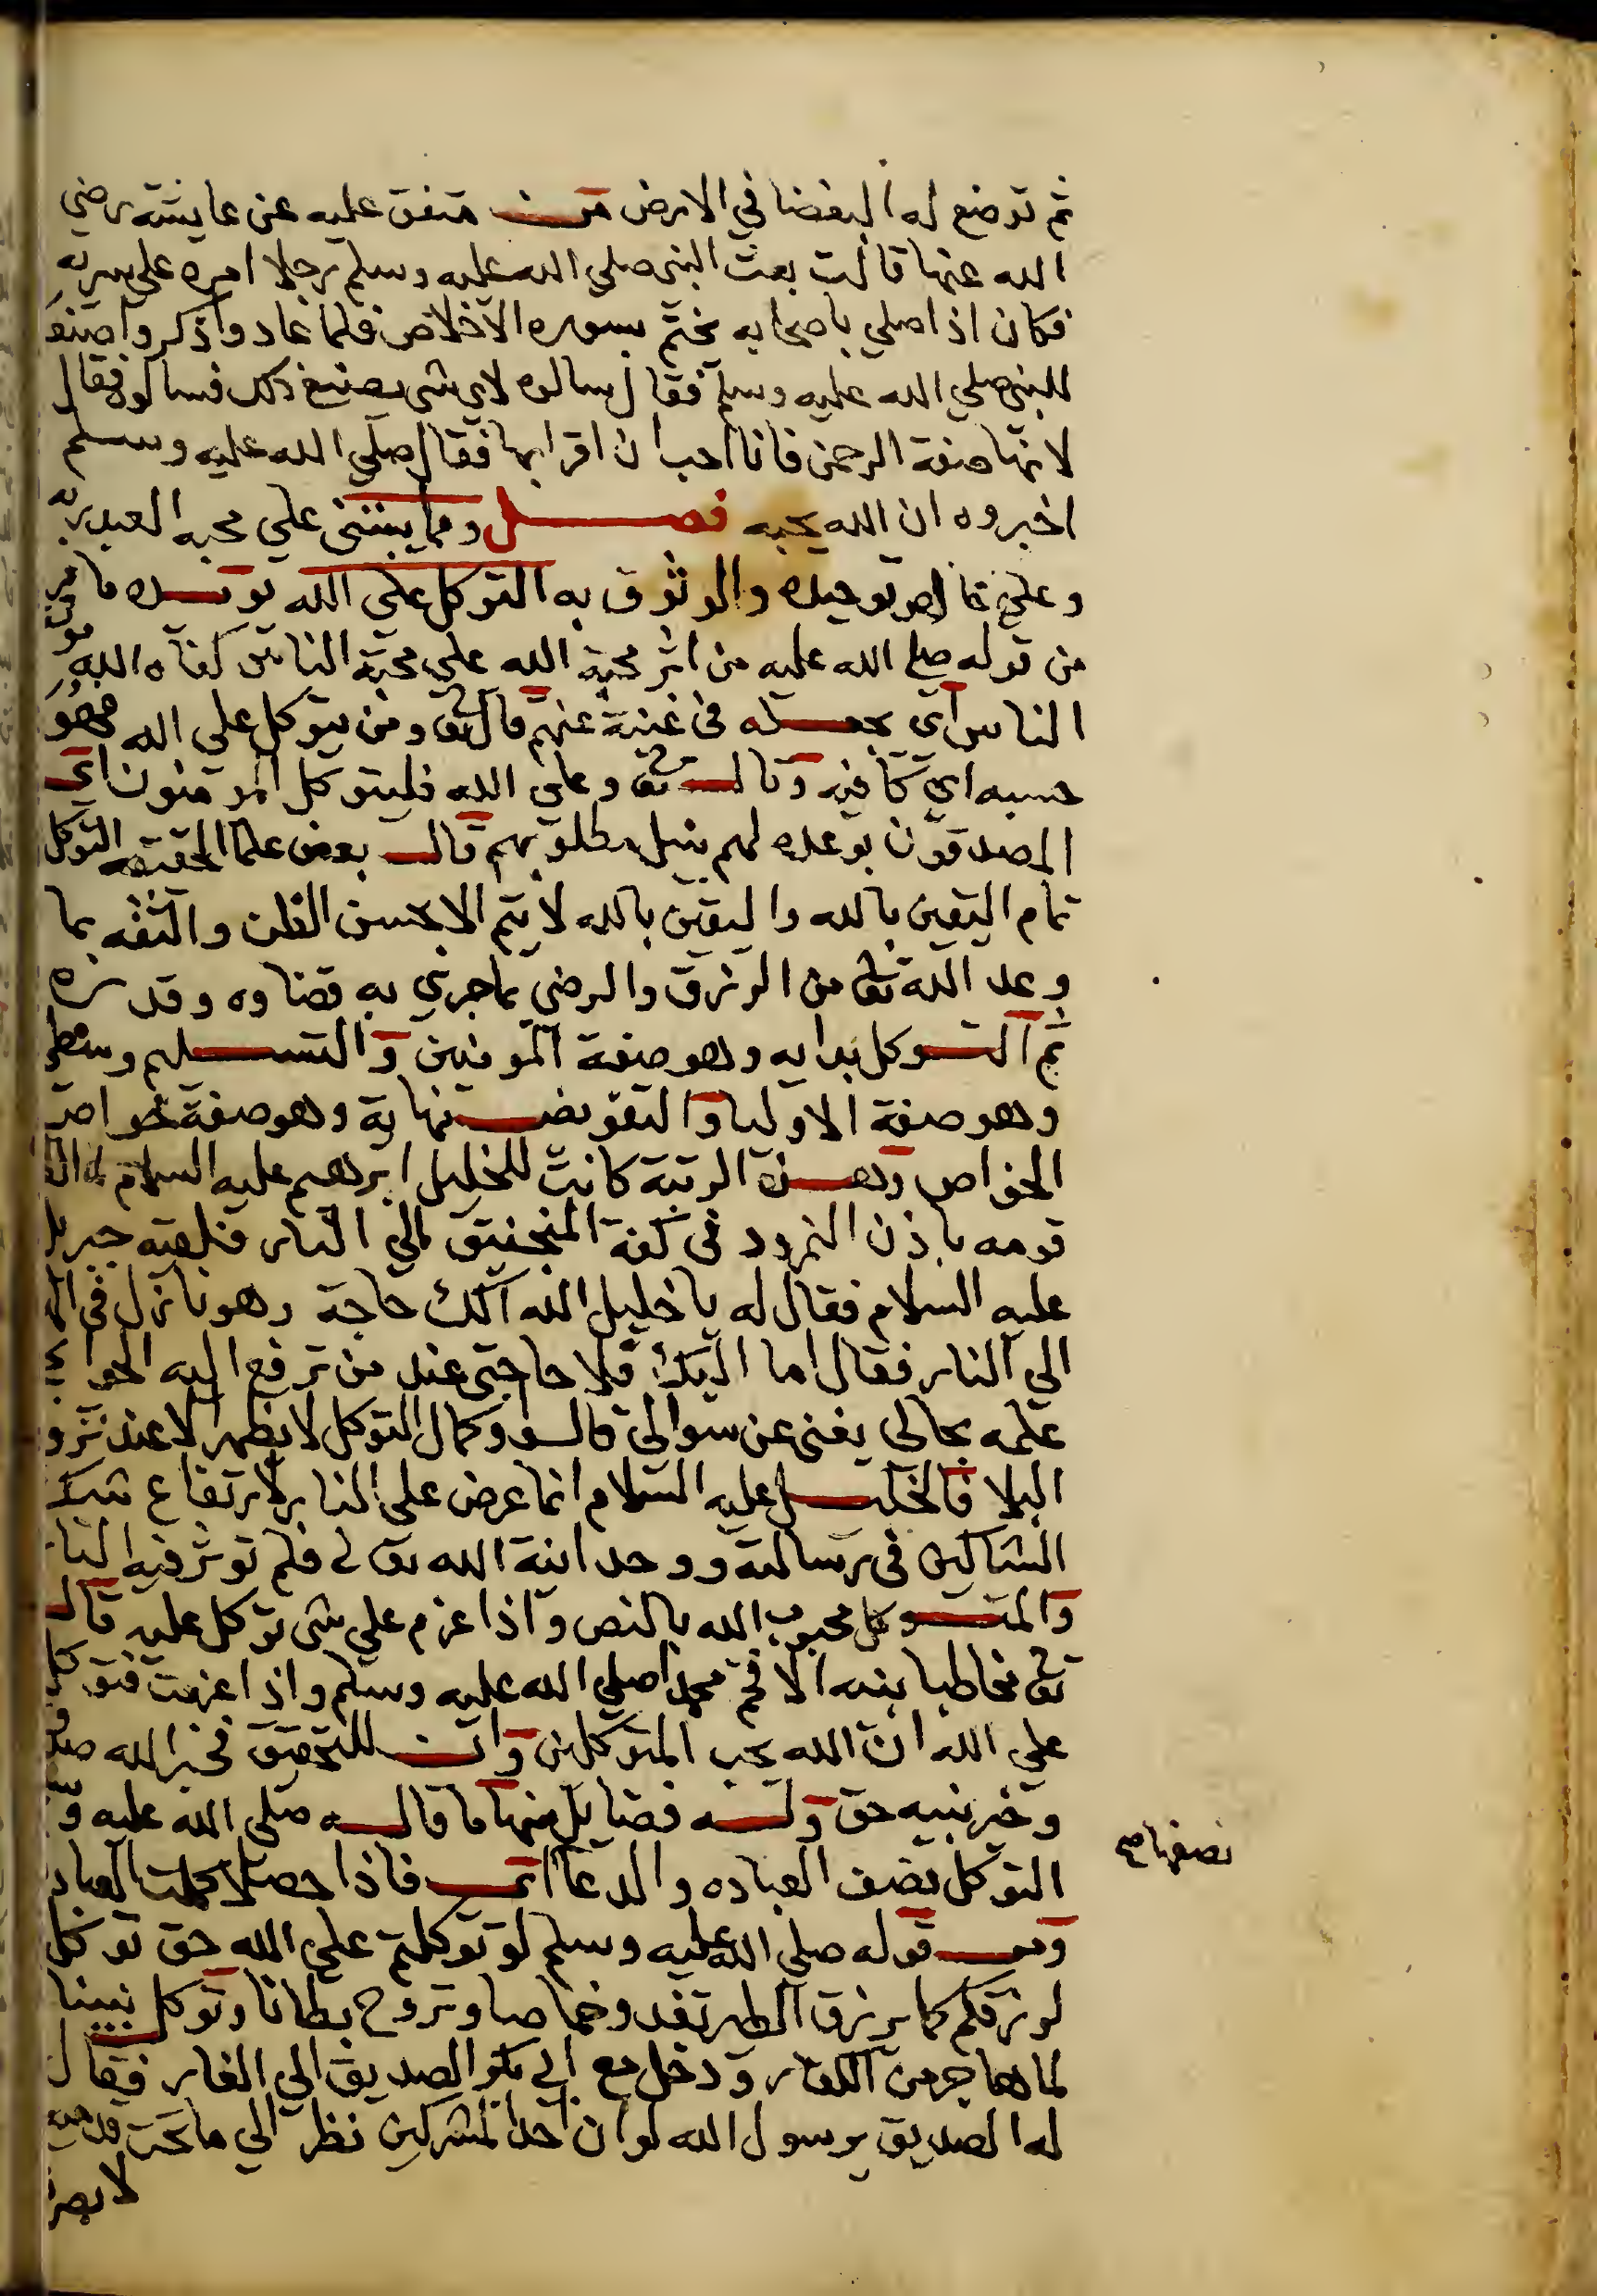 ثم توضع له البغضا في الارض متفق عليه عن عايشه رضي
الله عنها قالت بعث النبي صلي الله عليه وسلم رجلا امره علي سريه
فكان اذا صلي باصحابه يختم بسوره الاخلاص فلما عادوا ذكروا صنعه
للنبي صلي الله عليه وسلم فقال سالوه لاي شي يصنع ذلك فسالوه فقال
لانها صفة الرحمن فانا احب ان اقرا بها فقال صلي الله عليه وسلم
اخبروه ان الله يحبه فصل ومما يبتنى علي محبه العبد ربه
وعلي توحيده والوثوق به التوكل علي الله
من قوله صلي الله عليه من اثر محبة الله علي محبة الناس كفاه الله مونة
الناس اي يجعله في غنية عنهم قال تع ومن يتوكل علي الله فهو
حسبه اي كافيه وقال تع وعلي الله فليتوكل المومنون اي
المصدقون بوعده لهم بنيل مطلوبهم قال بعض علما الحقيقه التوكل
تمام اليقين بالله واليقين بالله لا يتم الا بحسن الظن والثقه بما
وعد الله تع من الرزق والرضي بما جري به قضاوه وقدره
ثم التوكل بدايه وهو صفة المومنين والتسليم وسط
وهو صفة الاوليا والتفويض نهاية وهو صفة خواص
الخواص وهذه الرتبة كانت للخليل ابرهيم عليه السلام لما القا
قومه باذن النمرود في كفة المنجنيق الي النار فلقيه جبريل
عليه السلام فقال له يا خليل الله الك حاجة وهو نازل في الهوا
الي النار فقال اما اليك فلا حاجتي عند من ترفع اليه الحوايج
علمه بحالي يغني عن سوالي قالوا وكمال التوكل لا يظهر الا عند نزو
البلا فالخليل عليه السلام انما عرض علي النار لارتفاع شك
الشاكين في رسالته ووحدانية الله تعالي فلم توثر فيه النار
والمتوكل محبوب الله بالنص واذا عزم علي شي توكل عليه قال
تع مخاطبا نبيه الافخم محمدا صلي الله عليه وسلم واذا عزمت فتوكل
علي الله ان الله يحب المتوكلين وان للتحقيق فخبر الله صدق
وخبر نبيه حق وله فضايل منها ما قاله صلي الله عليه وسلم
التوكل نصف العباده والدعا اي فاذا حصلا كملت العباد
نصفها صح
ومنه قوله صلي الله عليه وسلم لو توكلتم علي الله حق توكل
لرزقكم كما يرزق الطير تغدو خماصا وتروح بطانا وتوكل نبينا
لما هاجر من الكفار ودخل مع ابي بكر الصديق الي الغار فقال
له الصديق يرسول الله لو ان احد المشركين نظر الي ما تحت قدميه
لابصر